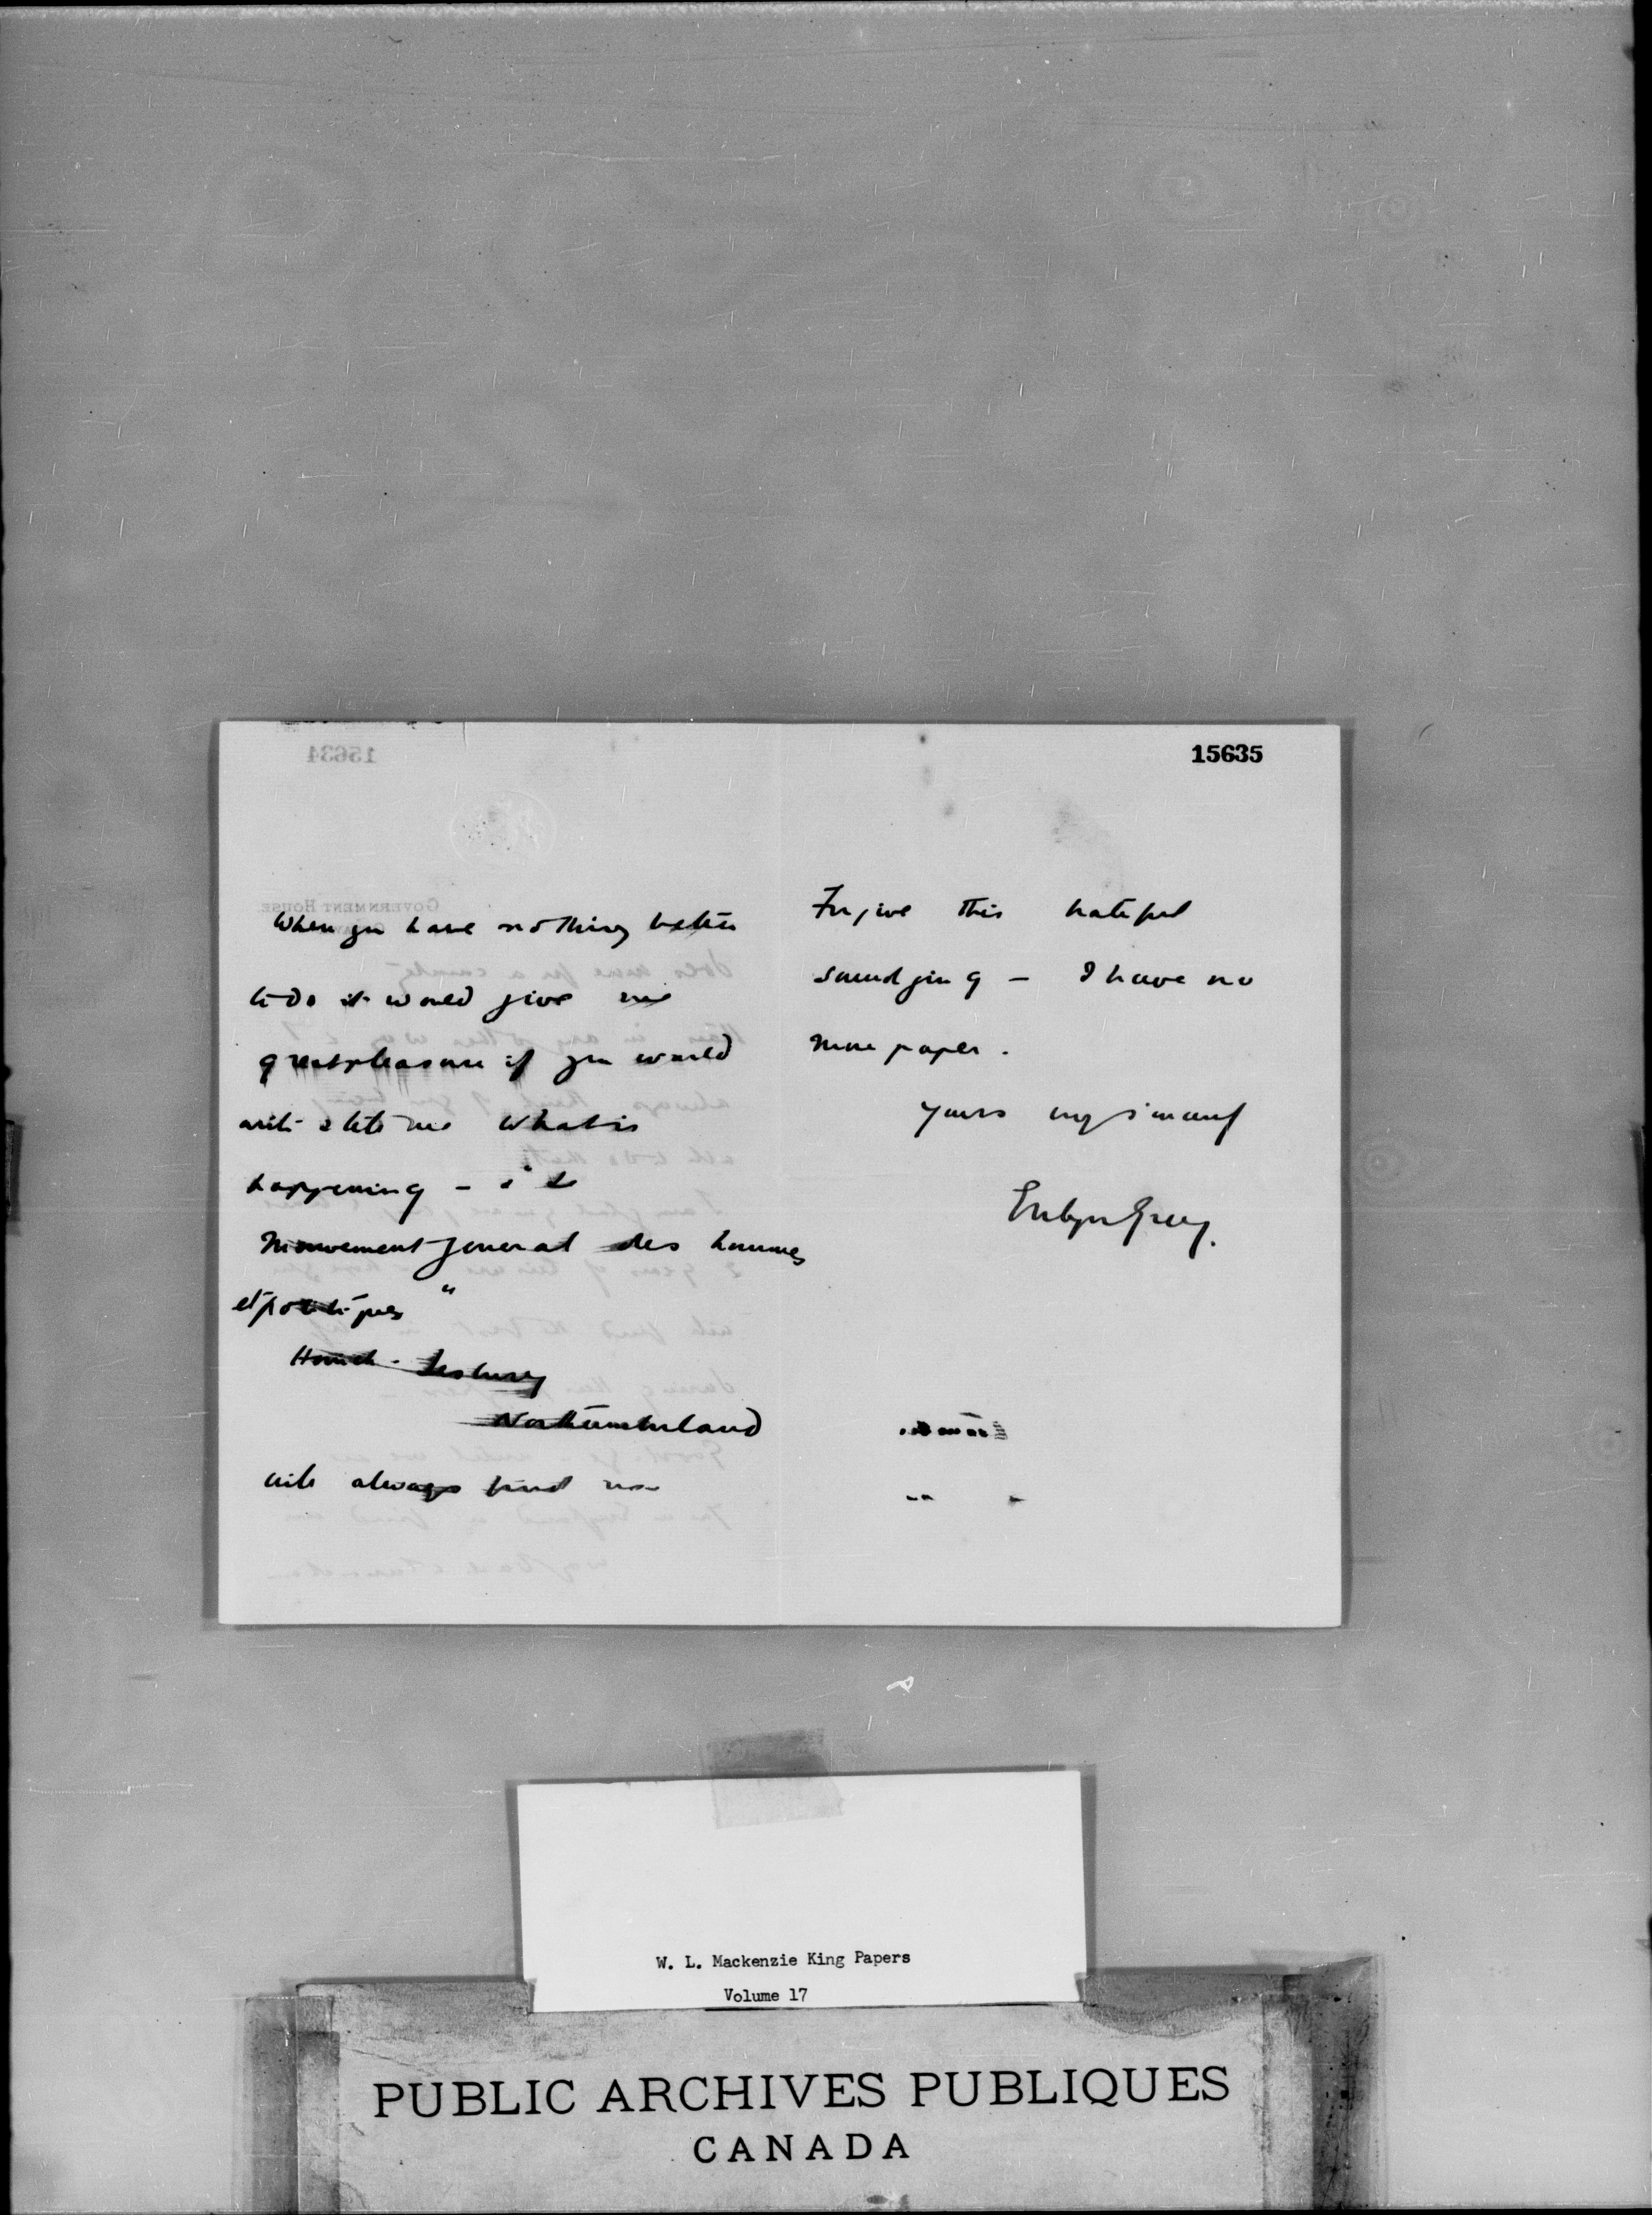 15635
When you have nothing better
to do it would give me
great pleasure if you would
write & let me what is
happening - "le
Mouvement general des hommes
et politiques"
Howick - Lesbury
Northumberland
will always find me
Forgive this hateful
smudging - I have no
more paper.
Yours very sincerely
Evelyn Grey.
W. L. Mackenzie King Papers
Volume 17
PUBLIC ARCHIVES PUBLIQUES
CANADA